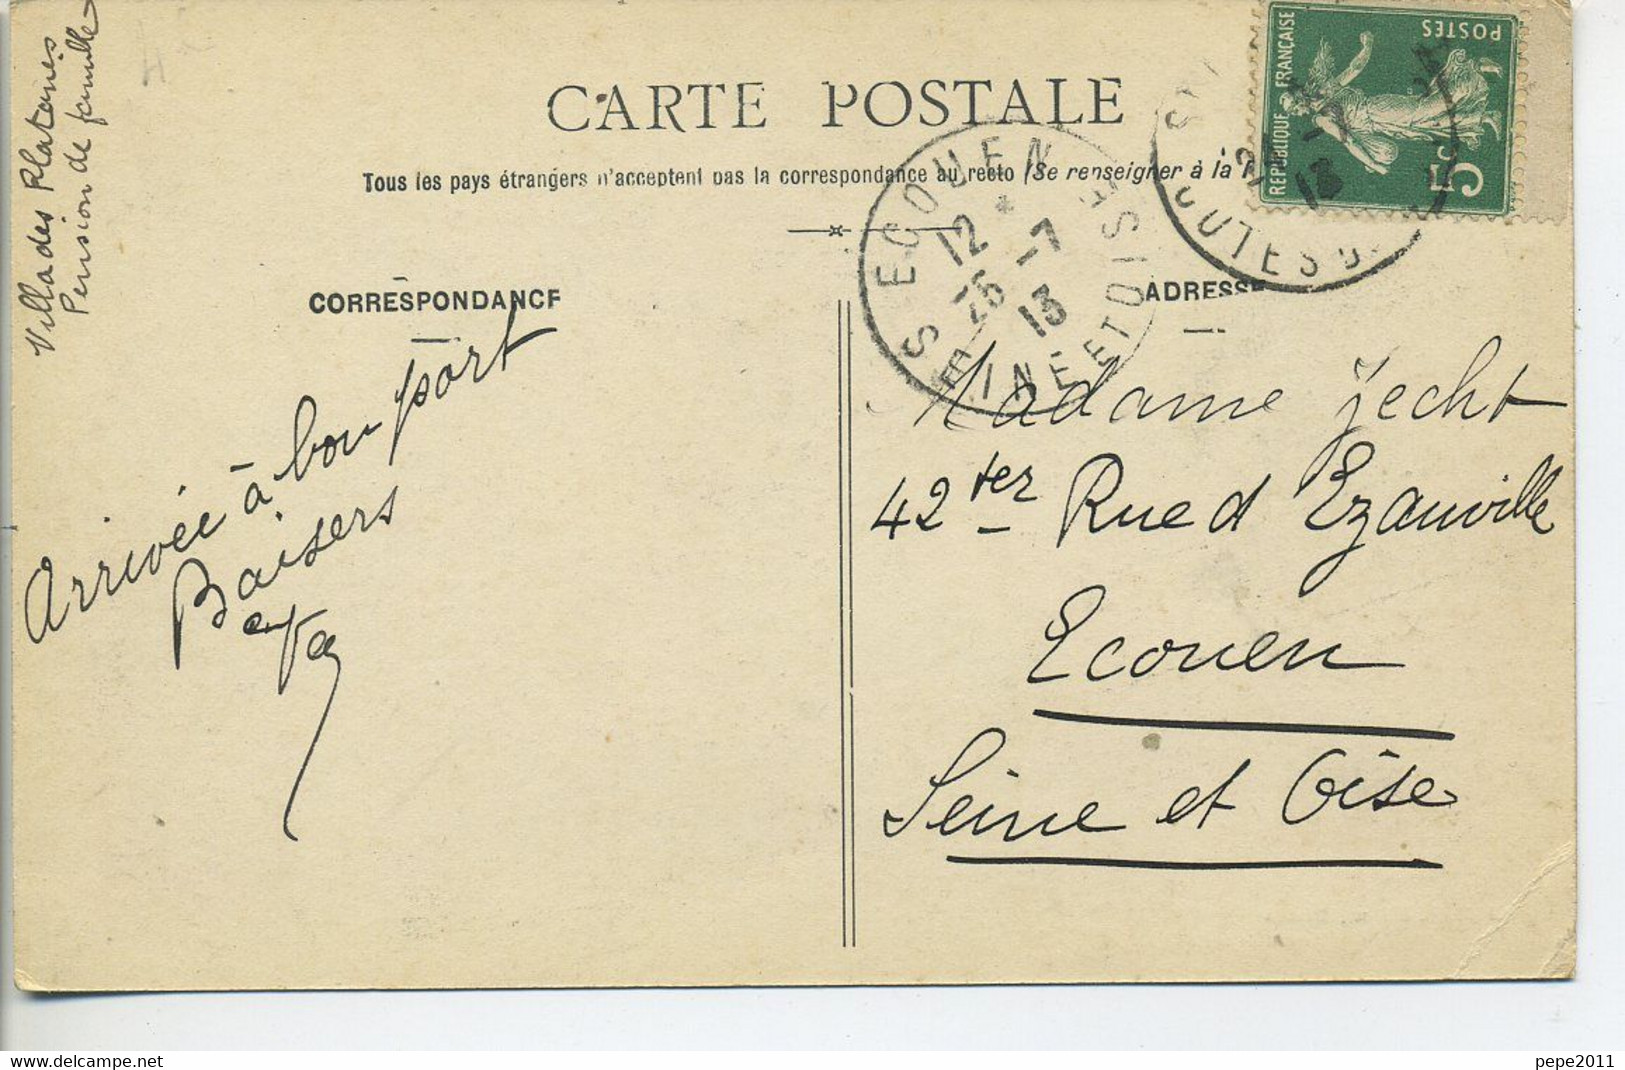 Villa des Platanes
Pension de famille
CARTE POSTALE
Tous les pays étrangers n'acceptent pas la correspondance au recto (Se renseigner à la
REPUBLIQUE FRANÇAISE
POSTES
5c
ECOUEN
12 *
25 -7
13
SEINE ET OISE
-7
13
CORRESPONDANCE
ADRESSE
Arrivée à bon port
Baisers
Madame Jecht
42 ter Rue d Ezanville
Ecouen
Seine et Oise
delcampe.net
pepe2011